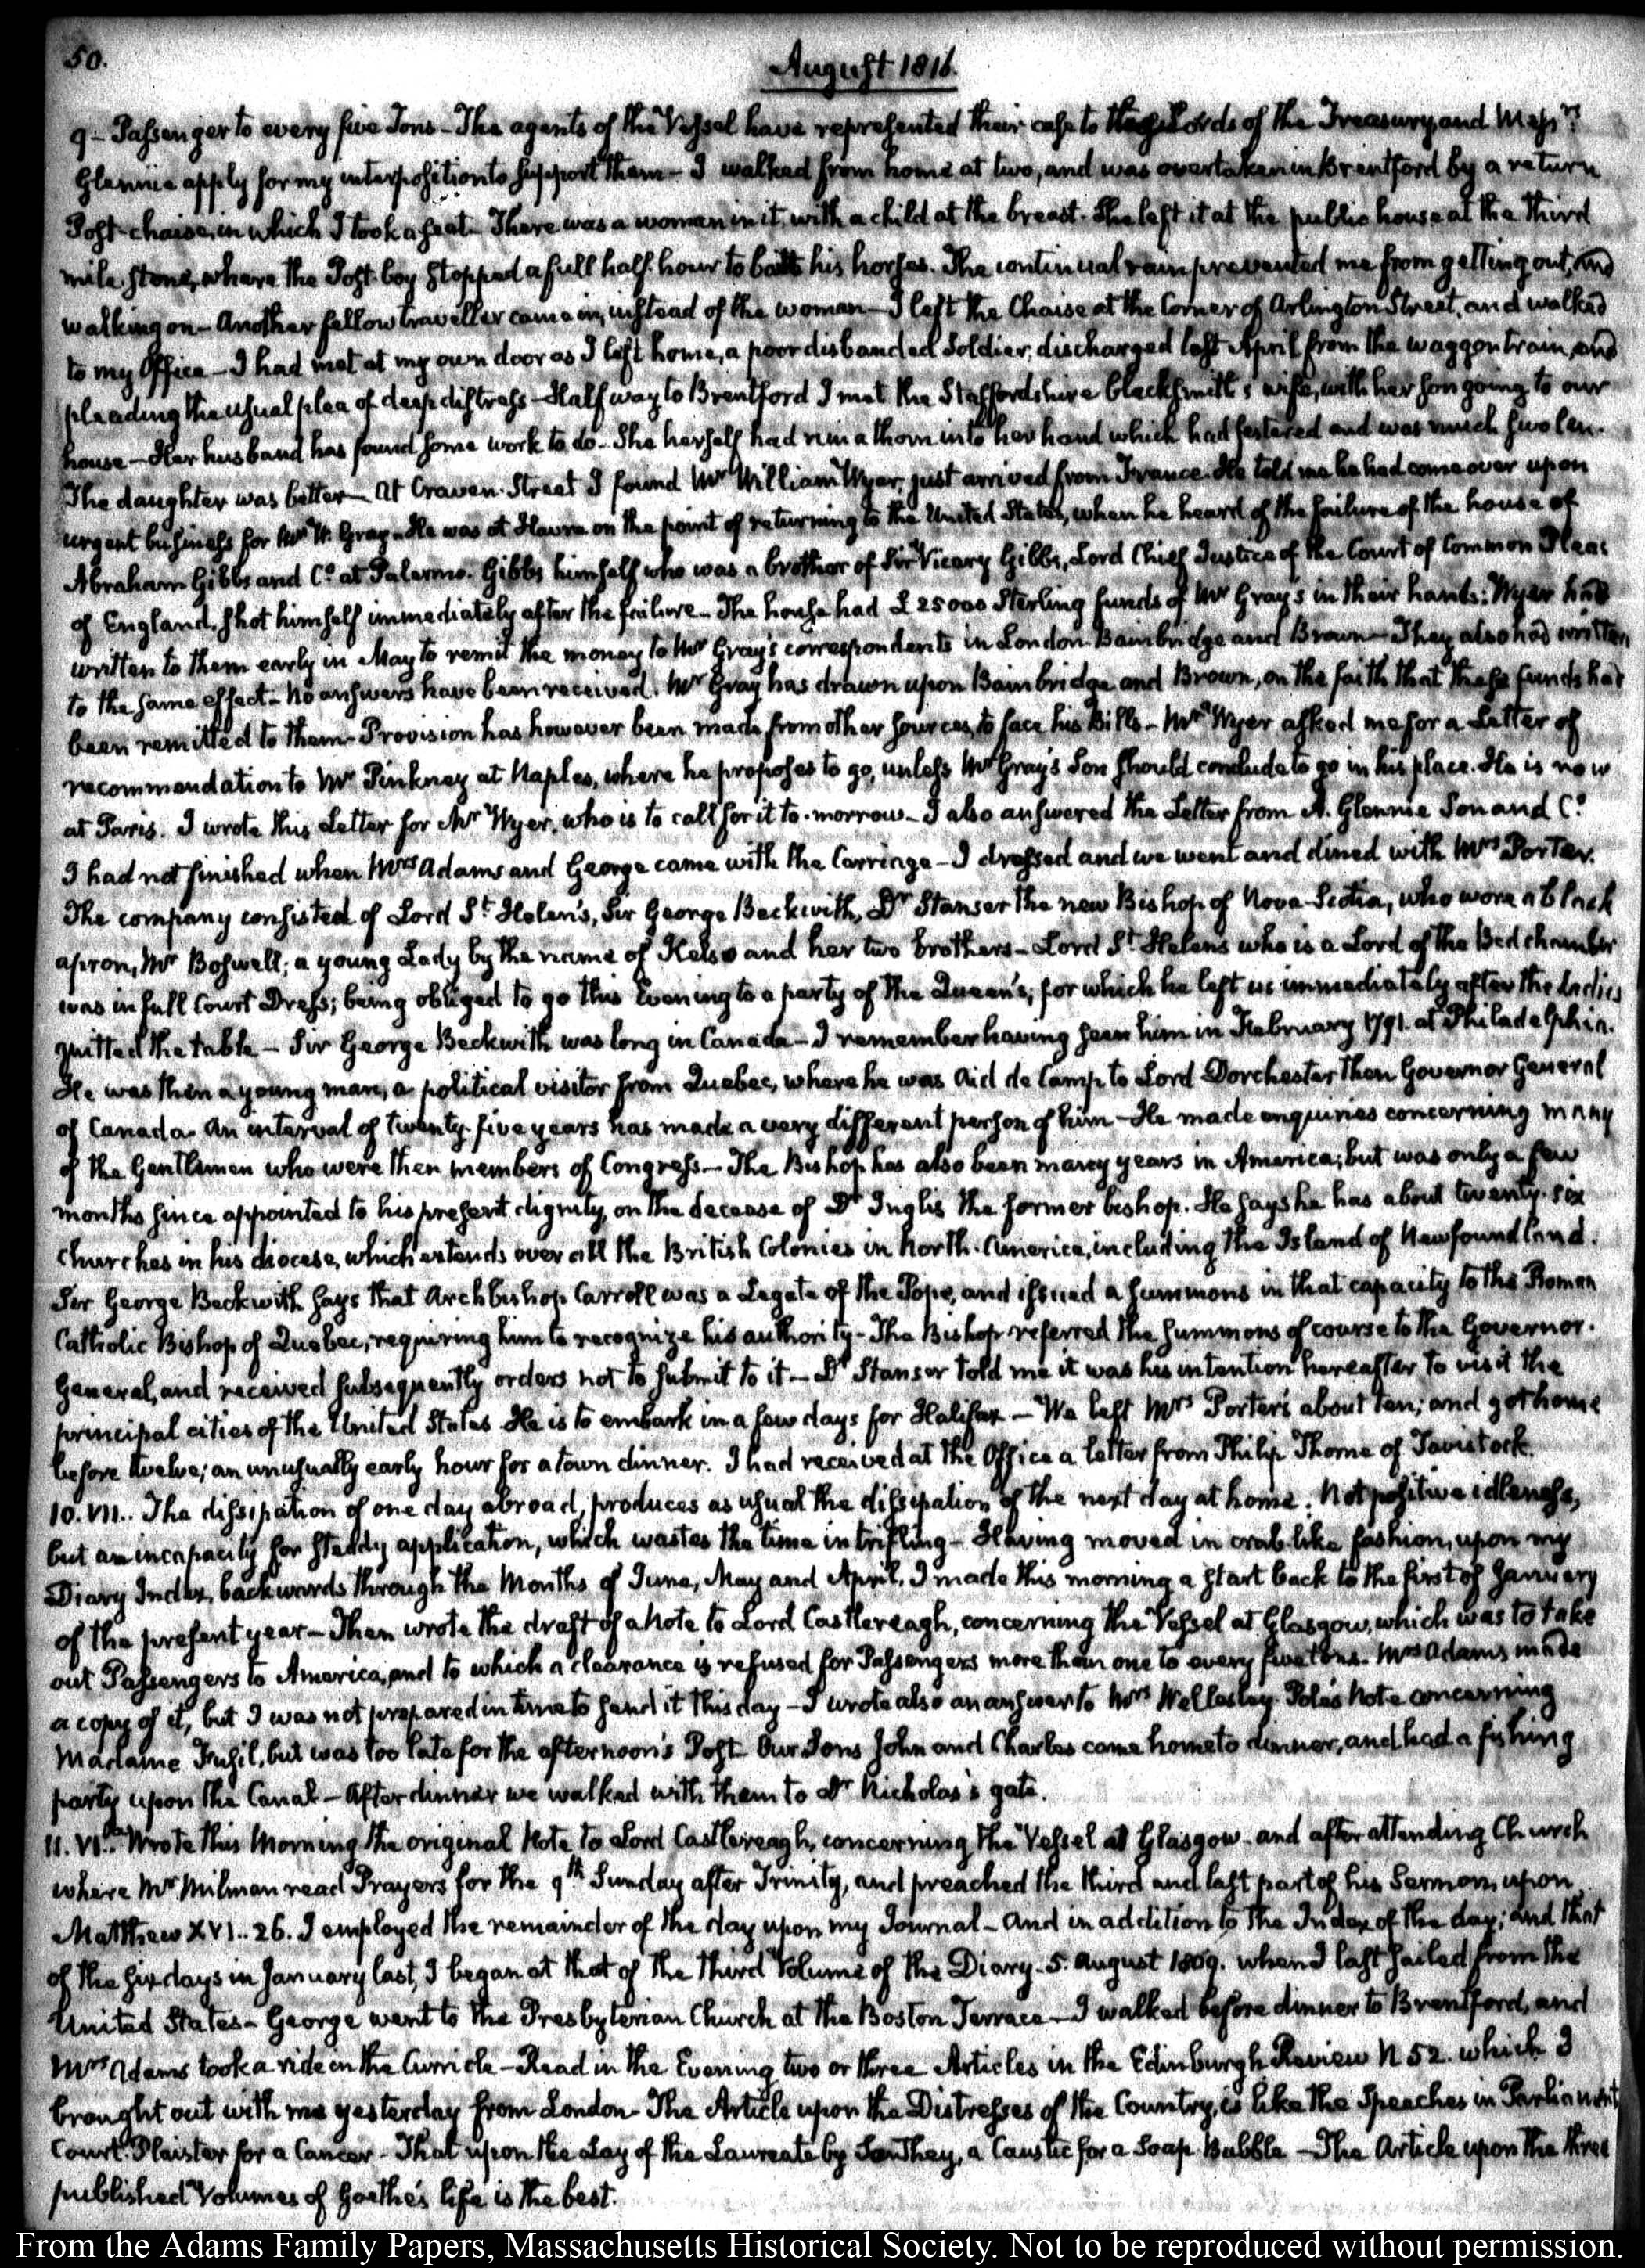 50.
August 1816.
9 - Passenger to every five Tons - The agents of the Vessel have represented their case to the Lords of the Treasury, and Messrs
Glennie apply for my interposition to support them - I walked from home at two, and was overtaken in Brentford by a return
Post-chaise, in which I took a seat - There was a woman in it, with a child at the breast. She left it at the public house at the third
mile stone, where the Post-boy stopped a full half-hour to bait his horses. The continual rain prevented me from getting out, and
walking on - Another fellow traveller came in, instead of the woman - I left the Chaise at the Corner of Arlington Street, and walked
to my Office - I had met at my own door as I left home, a poor disbanded Soldier, discharged last April from the waggon train, and
pleading the usual plea of deep distress - Half way to Brentford I met the Staffordshire blacksmith's wife, with her son going to our
house - Her husband has found some work to do - She herself had run a thorn into her hand which had festered and was much swolen.
The daughter was better - At Craven-Street I found Mr William Wyer, just arrived from France. He told me he had come over upon
urgent business for Mr W. Gray - He was at Havre on the point of returning to the United States, when he heard of the failure of the house of
Abraham Gibbs and Co. at Palermo. Gibbs himself who was a brother of Sir Vicary Gibbs, Lord Chief Justice of the Court of Common Pleas
of England, shot himself immediately after the failure - The house had £25000 Sterling funds of Mr Gray's in their hands: Wyer had
written to them early in May to remit the money to Mr Gray's correspondents in London Bainbridge and Brown - They also had written
to the same effect - No answers have been received. Mr Gray has drawn upon Bainbridge and Brown, on the faith that these funds had
been remitted to them - Provision has however been made from other sources, to face his Bills - Mr Wyer asked me for a Letter of
recommendation to Mr Pinkney at Naples, where he proposes to go, unless Mr Gray's Son should conclude to go in his place. He is now
at Paris. I wrote this Letter for Mr Wyer, who is to call for it to-morrow - I also answered the Letter from A. Glennie Son and Co.
I had not finished when Mrs Adams and George came with the Carriage - I dressed and we went and dined with Mrs Porter.
The company consisted of Lord St. Helen's, Sir George Beckwith, Dr Stanser the new Bishop of Nova-Scotia, who wore a black
apron, Mr Boswell; a young Lady by the name of Kelso and her two brothers - Lord St. Helens who is a Lord of the Bedchamber
was in full Court Dress; being obliged to go this Evening to a party of the Queen's; for which he left us immediately after the Ladies
quitted the table - Sir George Beckwith was long in Canada - I remember having seen him in February 1791. at Philadelphia.
He was then a young man, a political visitor from Quebec, where he was Aid de Camp to Lord Dorchester then Governor General
of Canada. An interval of twenty-five years has made a very different person of him - He made enquiries concerning many
of the Gentlemen who were then members of Congress - The Bishop has also been many years in America; but was only a few
months since appointed to his present dignity, on the decease of Dr Inglis the former bishop. He says he has about twenty-six
churches in his diocese, which extends over all the British Colonies in North-America, including the Island of Newfoundland.
Sir George Beckwith says that Archbishop Carroll was a Legate of the Pope, and issued a summons in that capacity to the Roman
Catholic Bishop of Quebec, requiring him to recognize his authority - The Bishop referred the summons of course to the Governor-
General, and received subsequently orders not to submit to it - Dr Stanser told me it was his intention hereafter to visit the
principal cities of the United States. He is to embark in a few days for Halifax - We left Mrs Porter's about ten; and got home
before twelve; an unusually early hour for a town dinner. I had received at the Office a letter from Philip Thorne of Tavistock.
10. VII.. The dissipation of one day abroad, produces as usual the dissipation of the next day at home. Not positive idleness,
but an incapacity for steady application, which wastes the time in trifling - Having moved in crab-like fashion, upon my
Diary Index, backwards through the Months of June, May and April, I made this morning a start back to the first of January
of the present year - Then wrote the draft of a Note to Lord Castlereagh, concerning the Vessel at Glasgow, which was to take
out Passengers to America, and to which a clearance is refused for Passengers more than one to every five tons. Mrs Adams made
a copy of it, but I was not prepared in time to send it this day - I wrote also an answer to Mrs Wellesley-Pole's Note concerning
Madame Fusil, but was too late for the afternoon's Post. Our Sons John and Charles came home to dinner, and had a fishing
party upon the Canal - After dinner we walked with them to Dr Nicholas's gate.
11. VI.. Wrote this Morning the original Note to Lord Castlereagh, concerning the Vessel at Glasgow - and after attending Church
where Mr Milman read Prayers for the 9th Sunday after Trinity, and preached the third and last part of his Sermon, upon
Matthew XVI..26. I employed the remainder of the day upon my Journal - And in addition to the Index of the day; and that
of the six days in January last, I began at that of the third Volume of the Diary - 5. August 1809. when I last sailed from the
United States - George went to the Presbyterian Church at the Boston Terrace - I walked before dinner to Brentford, and
Mrs Adams took a ride in the Curricle - Read in the Evening two or three Articles in the Edinburgh Review N 52. which I
brought out with me yesterday from London - The Article upon the Distresses of the Country, is like the Speeches in Parliament
Court-Plaister for a Cancer - That upon the Lay of the Laureate by Southey, a Caustic for a Soap-Bubble - The Article upon the three
published Volumes of Goethe's life is the best.
From the Adams Family Papers, Massachusetts Historical Society. Not to be reproduced without permission.